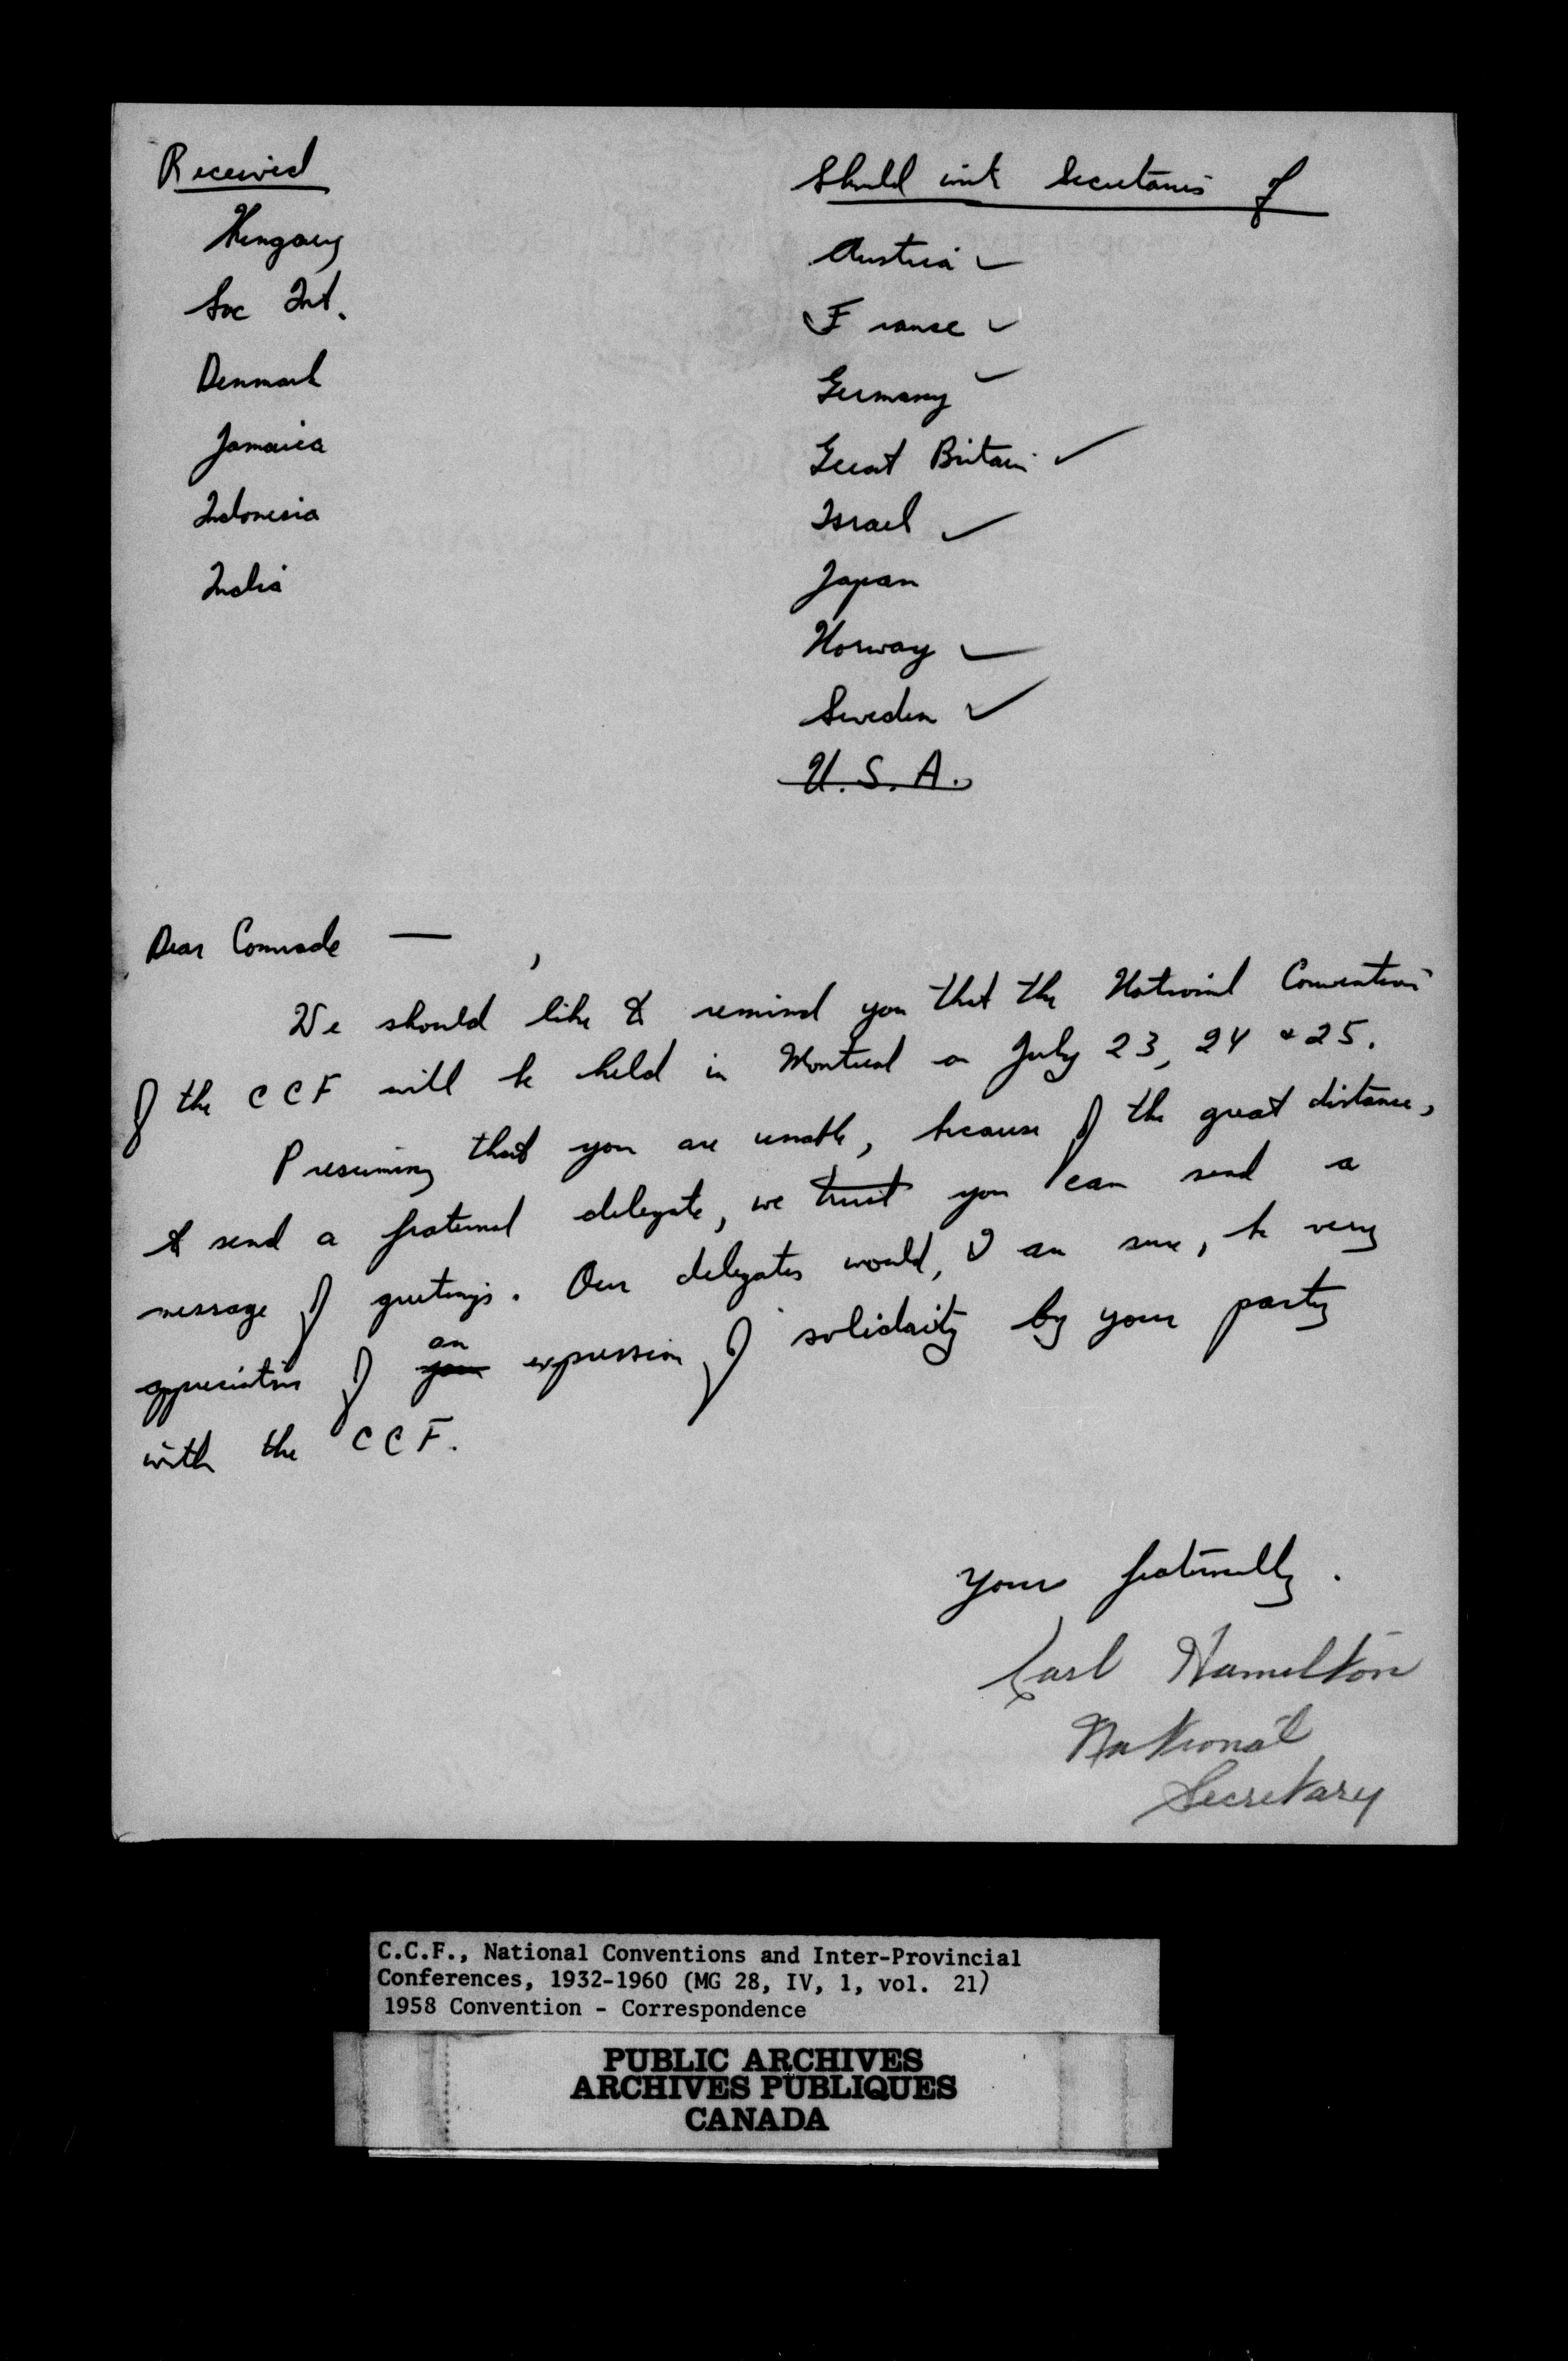 Received
Hungary
Soc Int.
Denmark
Jamaica
Indonesia
India
Should write Secretaries of
Austria ✓
France ✓
Germany ✓
Great Britain ✓
Israel ✓
Japan
Norway ✓
Sweden ✓
U.S.A.
Dear Comrade — ,
We should like to remind you that the National Convention
of the CCF will be held in Montreal on July 23, 24 & 25.
Presuming that you are unable, because of the great distance,
to send a fraternal delegate, we trust you can send a
message of greetings. Our delegates would, I am sure, be very
appreciative of your an expression of solidarity by your party
with the CCF.
Yours fraternally.
Carl Hamilton
National
Secretary
C.C.F., National Conventions and Inter-Provincial
Conferences, 1932-1960 (MG 28, IV, 1, vol. 21)
1958 Convention - Correspondence
PUBLIC ARCHIVES
ARCHIVES PUBLIQUES
CANADA